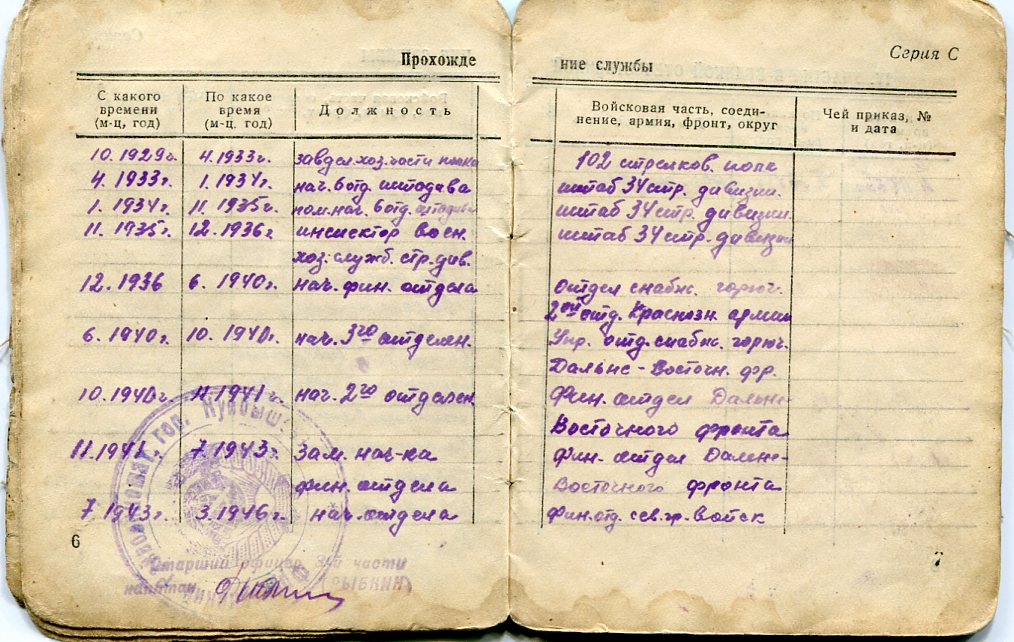 Прохожде
ние службы
Серия С
С какого времени (м-ц, год)
По какое время (м-ц, год)
Должность
Войсковая часть, соеди-
нение, армия, фронт, округ
Чей приказ, №
и дата
10.1929г. 4.1933г. завдел.хоз.части полка 102 стрелков. полк
4.1933г. 1.1934г. нач. 6 отд. штадива штаб 34 стр. дивизии.
1.1934г. 11.1935г. пом.нач. 6 отд. штадива штаб 34 стр. дивизии.
11.1935г. 12.1936г. инспектор воен. штаб 34 стр. дивизии
хоз. служб. стр. див.
12.1936 6.1940г. нач. фин. отдела отдел снабж. горюч.
2ой отд. Краснозн. армии
6.1940г. 10.1940г. нач. 3го отделен. Упр. отд. снабж. горюч.
Дальне-Восточн. фр.
10.1940г. 11.1941г. нач. 2го отделен. Фин. отдел Дальне-
Восточного фронта
11.1941г. 7.1943г. Зам. нач-ка Фин. отдел Дальне-
фин. отдела Восточного фронта
7.1943г. 3.1946г. нач. отдела Фин. отд. сев. гр. войск
гор. Куйбыш.
Старший офицер 3-й части
капитан (РЫБКИН)
6
7